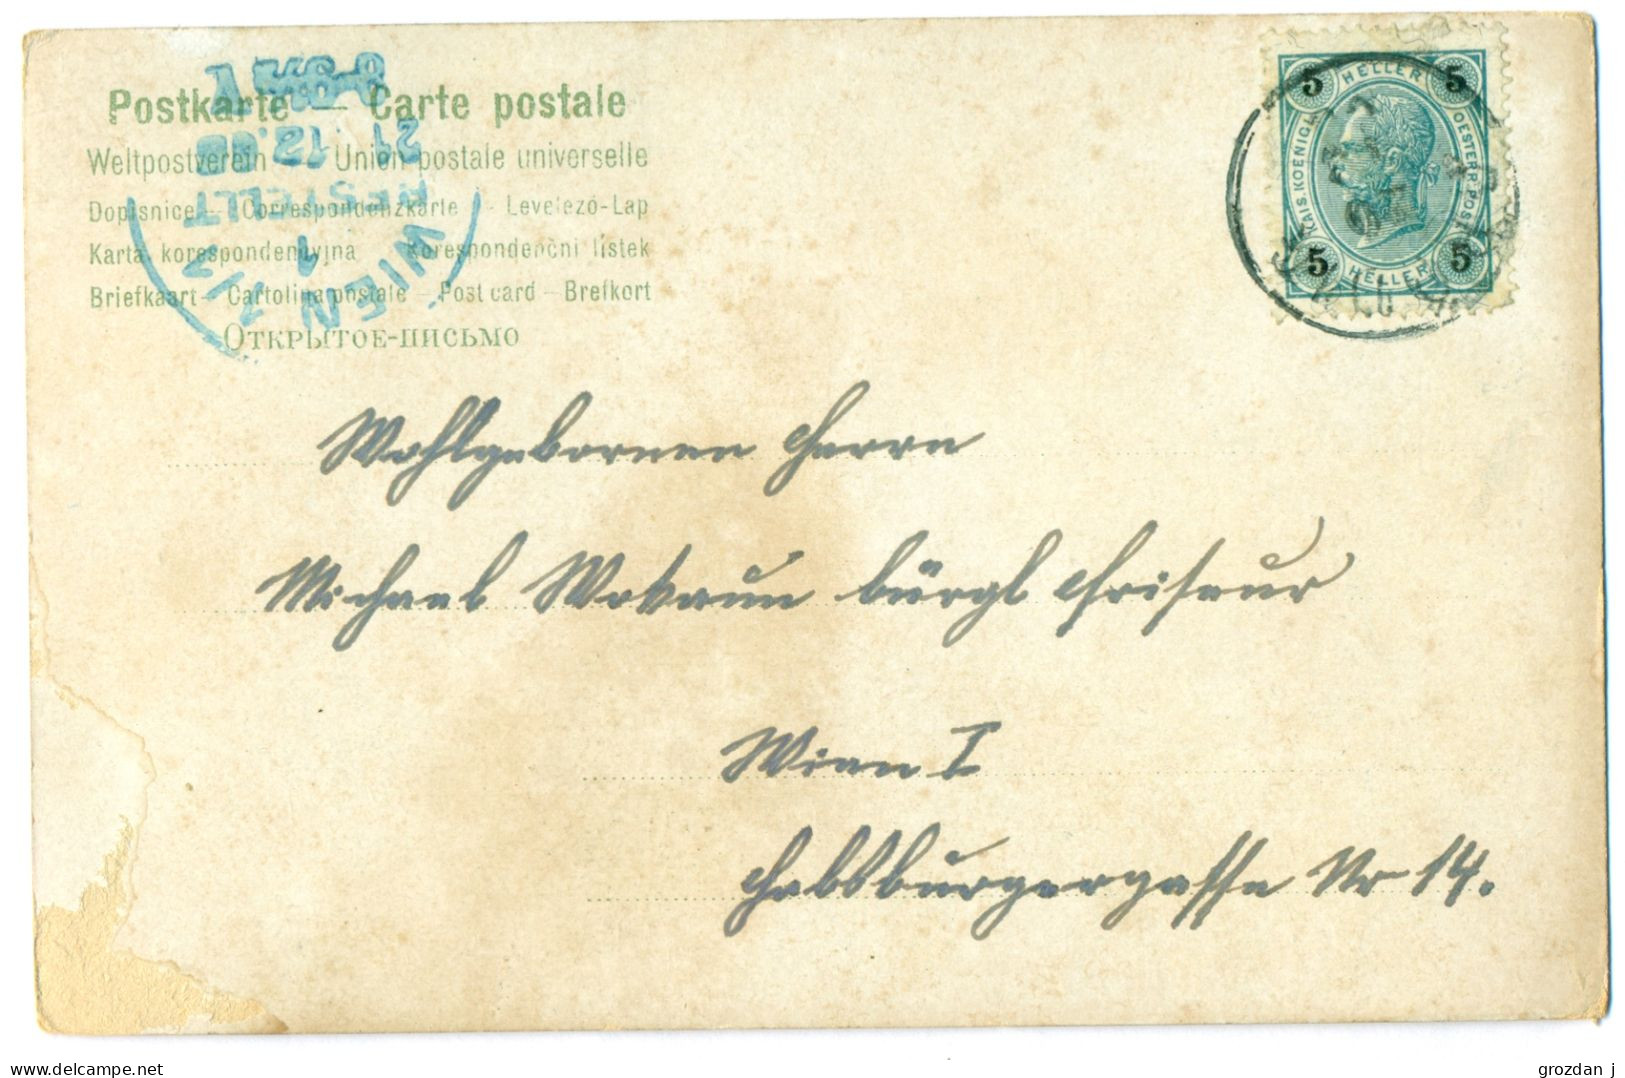 Postkarte — Carte postale
Weltpostverein — Union postale universelle
Dopisnice — Correspondenzkarte — Levelező-Lap
Karta korespondencyjna — Korespondenční lístek
Briefkaart — Cartolina postale — Post card — Brefkort
Открытое-письмо
WIEN 1/1
1
BESTELLT
21 12.
5 HELLER 5
KAIS. KOENIGL. OESTERR. POST
5 HELLER 5
Wohlgebornen Herrn
Michael Wokaun bürgl Friseur
Wien I
Habsburgergasse Nr 14.
grozdan j